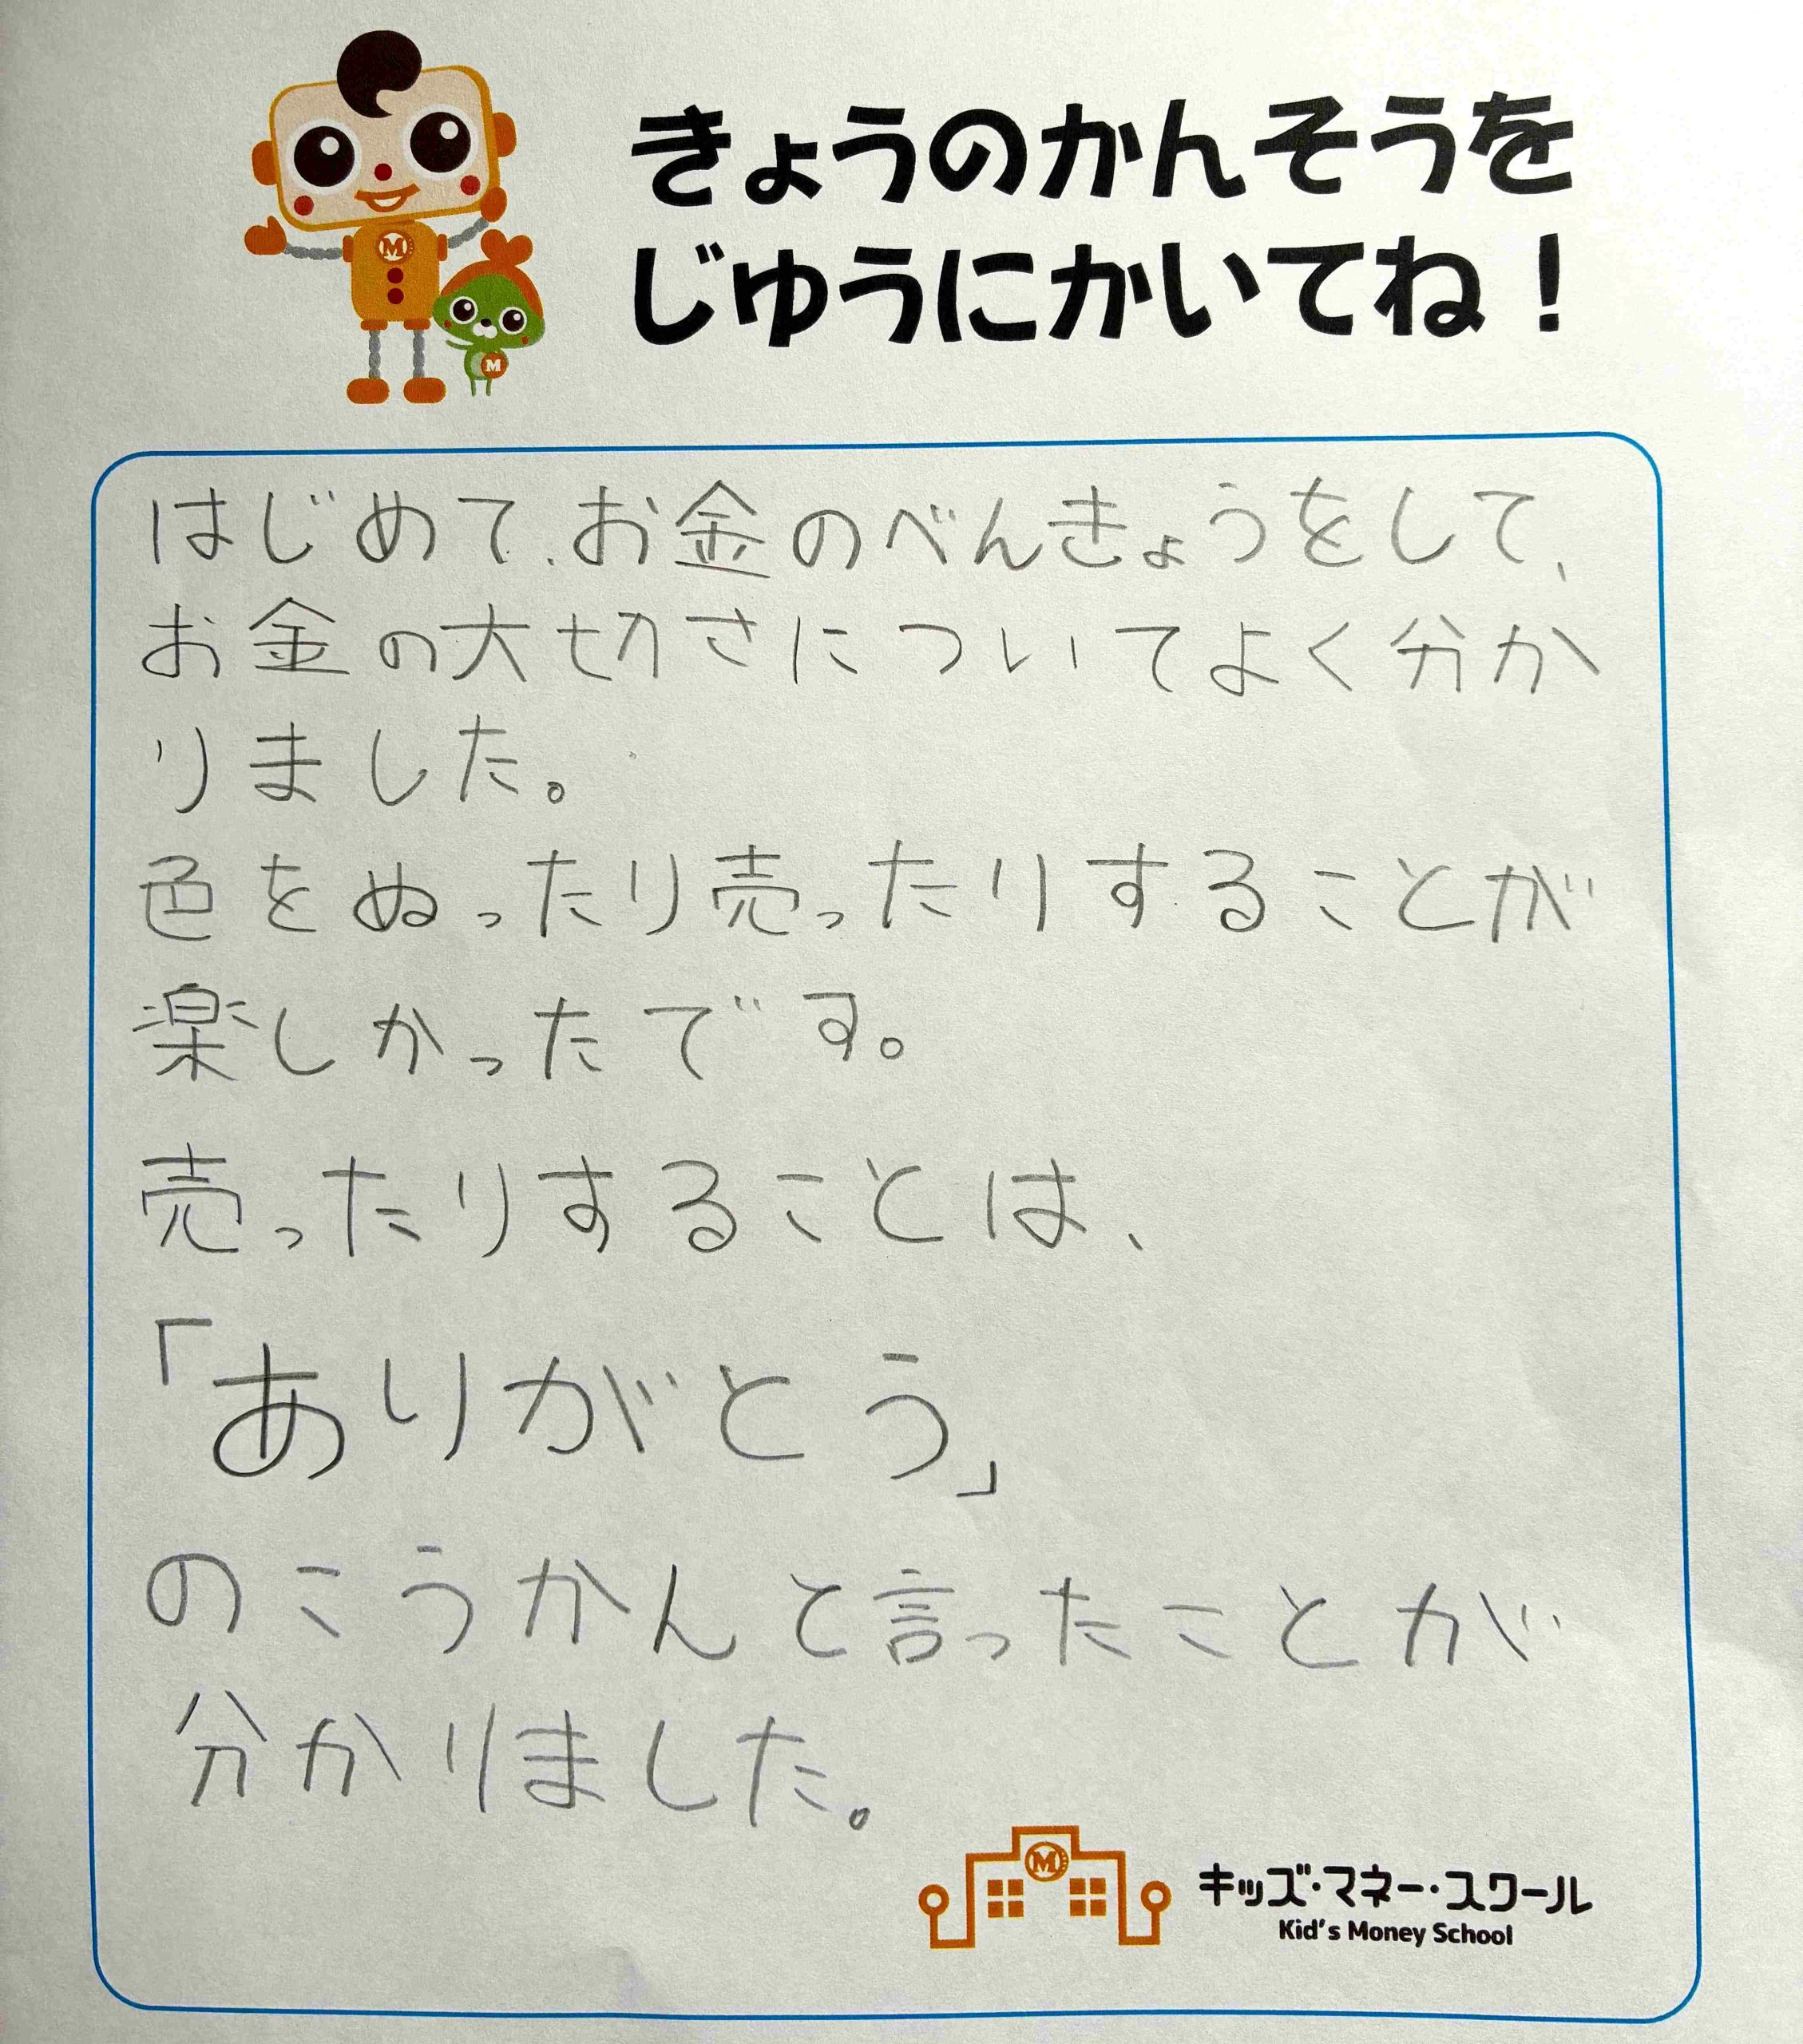 きょうのかんそうを
じゆうにかいてね！
はじめて、お金のべんきょうをして、
お金の大切さについてよく分か
りました。
色をぬったり売ったりすることが
楽しかったです。
売ったりすることは、
「ありがとう」
のこうかんと言ったことが
分かりました。
キッズ・マネー・スクール
Kid's Money School